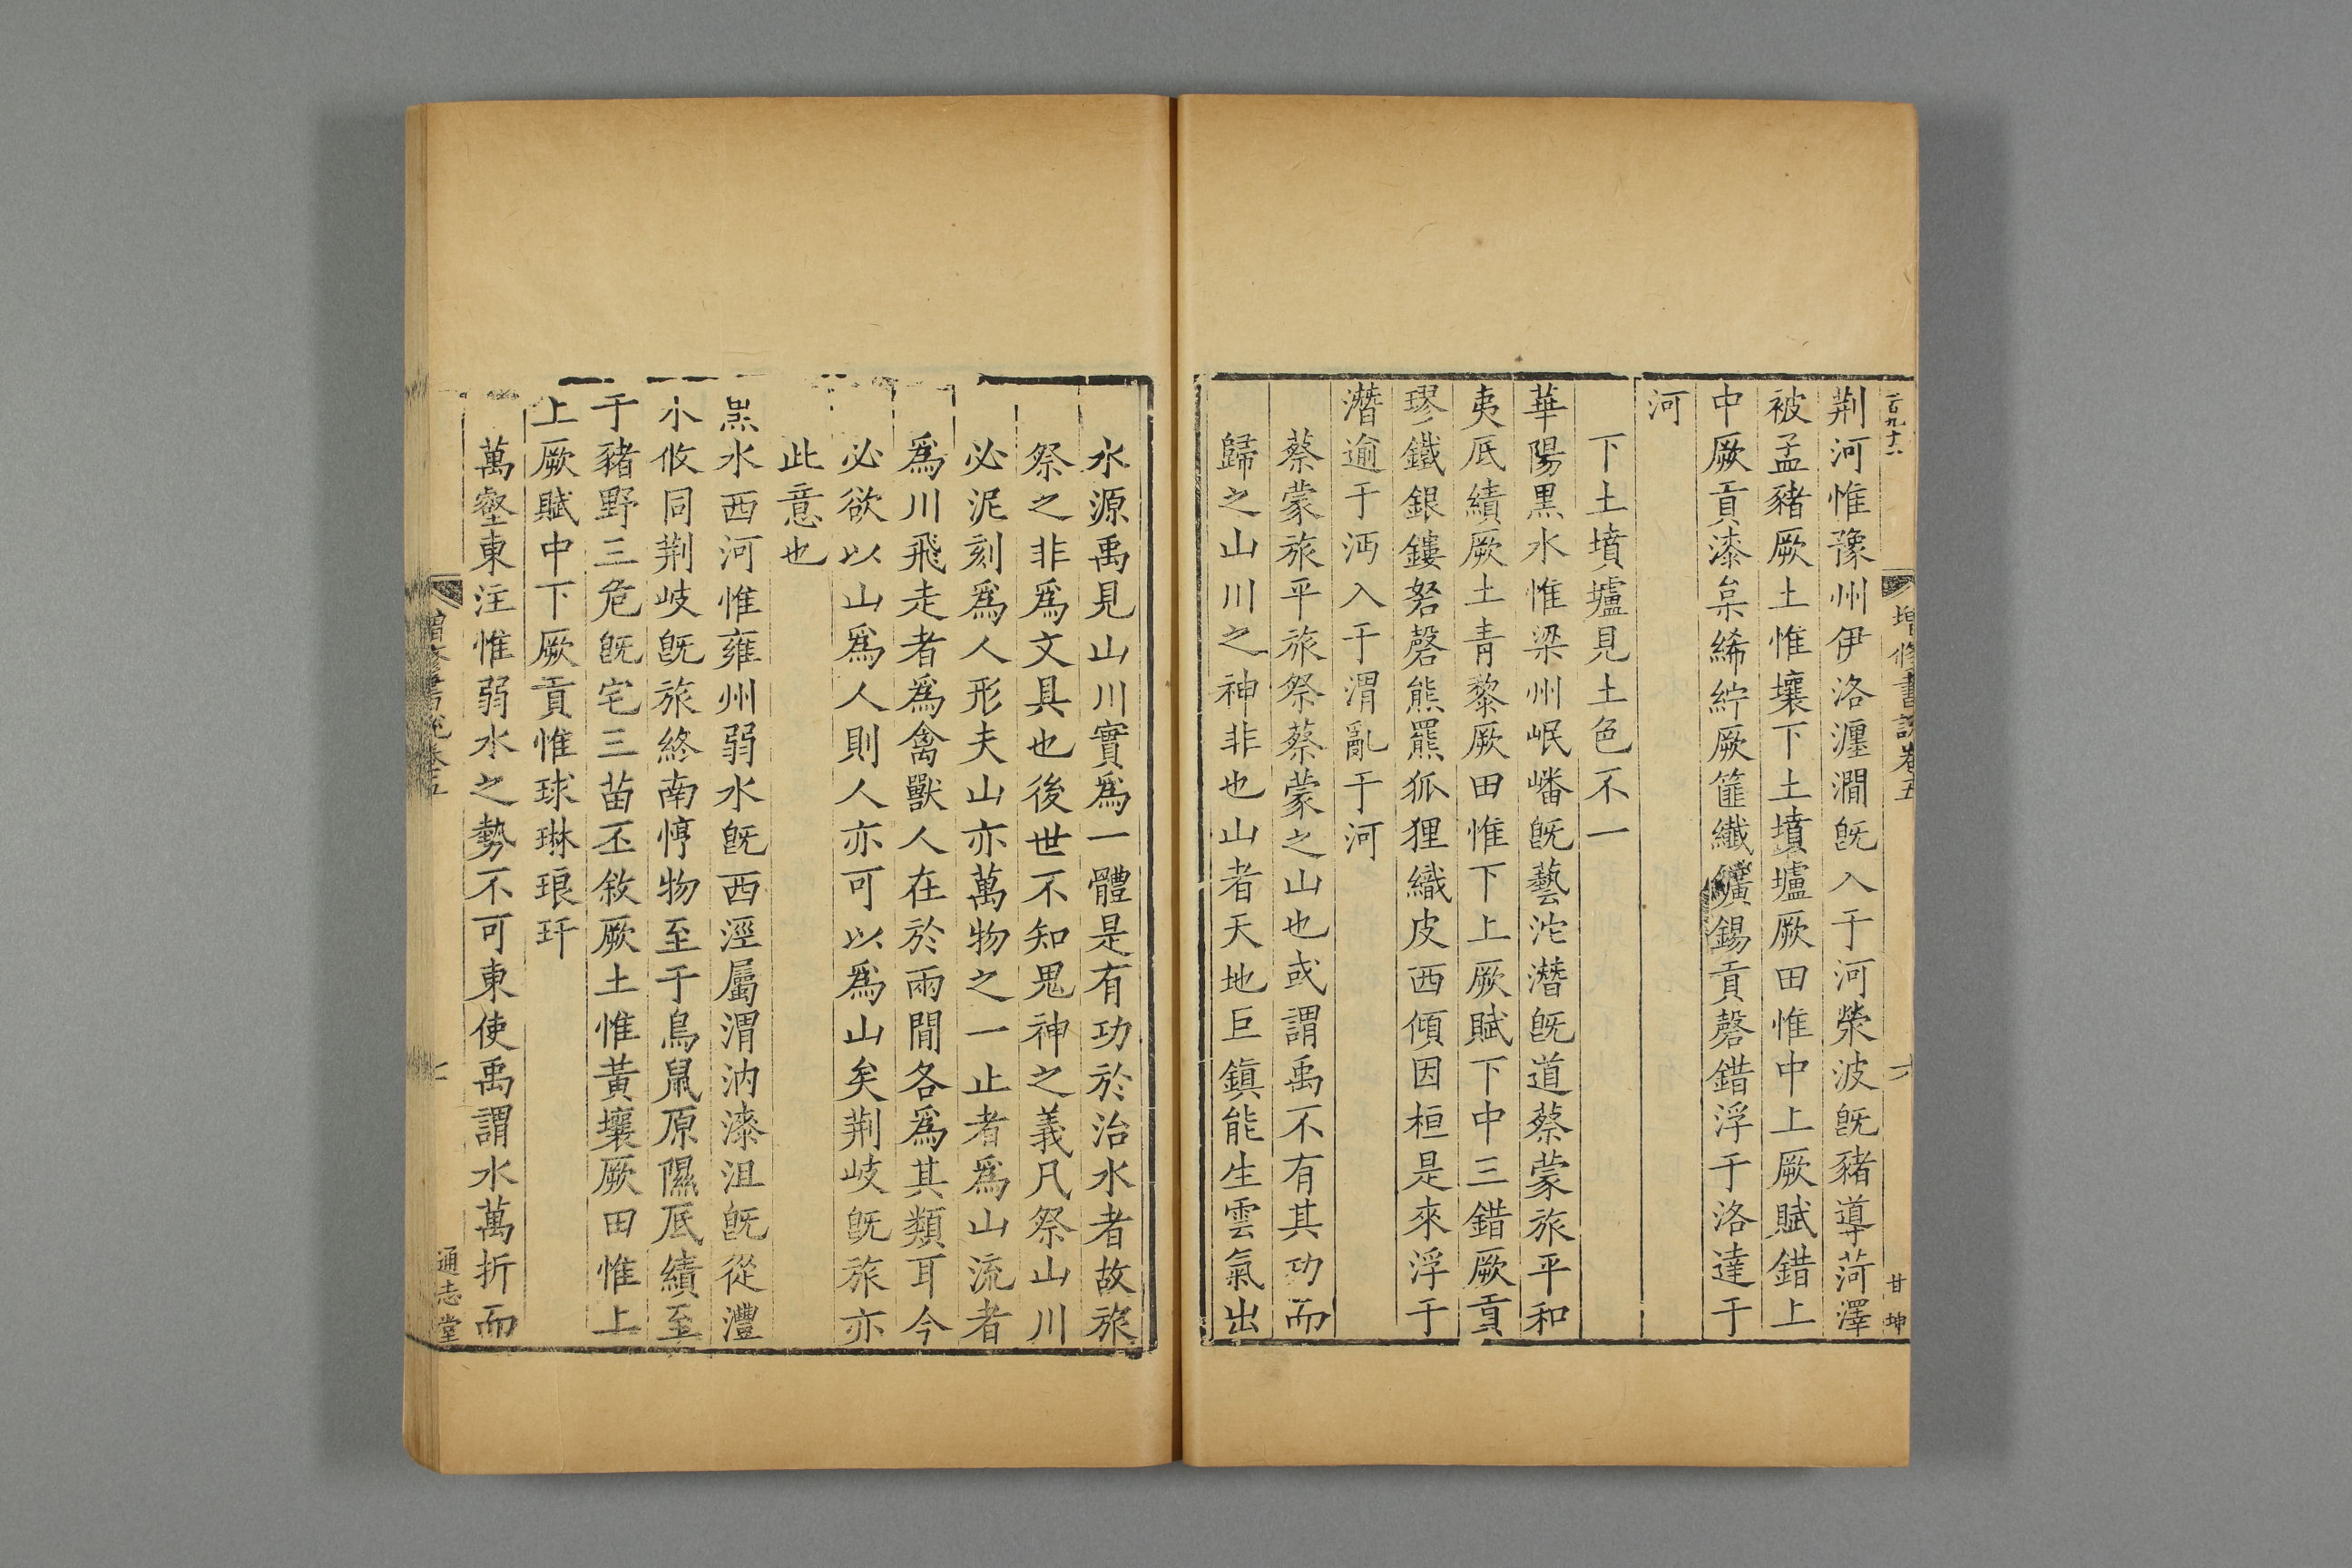 增修書說卷五
六
甘坤
荆河惟豫州伊洛瀍澗旣入于河滎波旣豬導菏澤
被孟豬厥土惟壤下土墳壚厥田惟中上厥賦錯上
中厥貢漆枲絺紵厥篚纖纊錫貢磬錯浮于洛達于
河
下土墳壚見土色不一
華陽黑水惟梁州岷嶓旣藝沱潛旣道蔡蒙旅平和
夷厎績厥土青黎厥田惟下上厥賦下中三錯厥貢
璆鐵銀鏤砮磬熊羆狐狸織皮西傾因桓是來浮于
潛逾于沔入于渭亂于河
蔡蒙旅平旅祭蔡蒙之山也或謂禹不有其功而
歸之山川之神非也山者天地巨鎭能生雲氣出
水源禹見山川實爲一體是有功於治水者故旅
祭之非爲文具也後世不知鬼神之義凡祭山川
必泥刻爲人形夫山亦萬物之一止者爲山流者
爲川飛走者爲禽獸人在於兩間各爲其類耳今
必欲以山爲人則人亦可以爲山矣荆岐旣旅亦
此意也
黑水西河惟雍州弱水旣西涇屬渭汭漆沮旣從灃
水攸同荆岐旣旅終南惇物至于鳥鼠原隰厎績至
于豬野三危旣宅三苗丕敘厥土惟黃壤厥田惟上
上厥賦中下厥貢惟球琳琅玕
萬壑東注惟弱水之勢不可東使禹謂水萬折而
通志堂